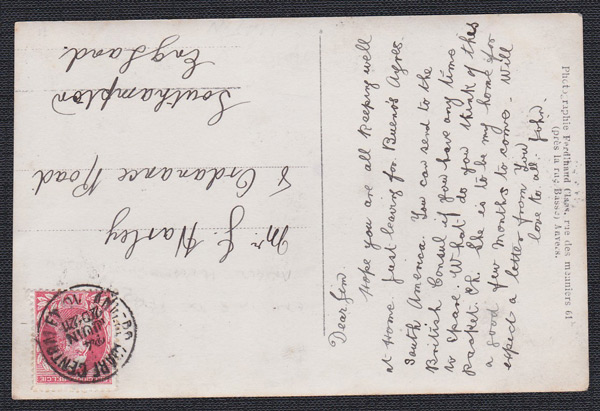 Dear Jim.
Hope you are all keeping well
at Home. Just leaving for Bueno's Ayres.
South America. You can send to the
British Consul if you have any time
to spare. What do you think of this
Packet. Eh. She is to be my home for
a good few months to come. Will
expect a letter from you
love to all. John.
Mr J. Harley
8 Ordanance Road
Southampton
England.
Photographie Ferdinand Claes, rue des menniers 61
(près la rue Basse) Anvers.
ANVERS GARE CENTRALE
24
JUIN